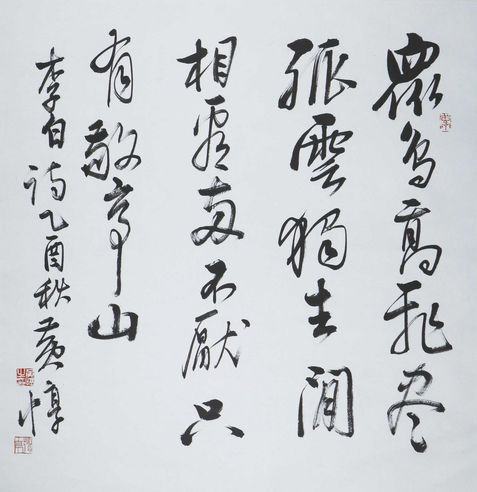 眾鳥高飛尽
孤雲獨去閒
相看兩不厭只
有敬亭山
李白詩乙酉秋黃惇